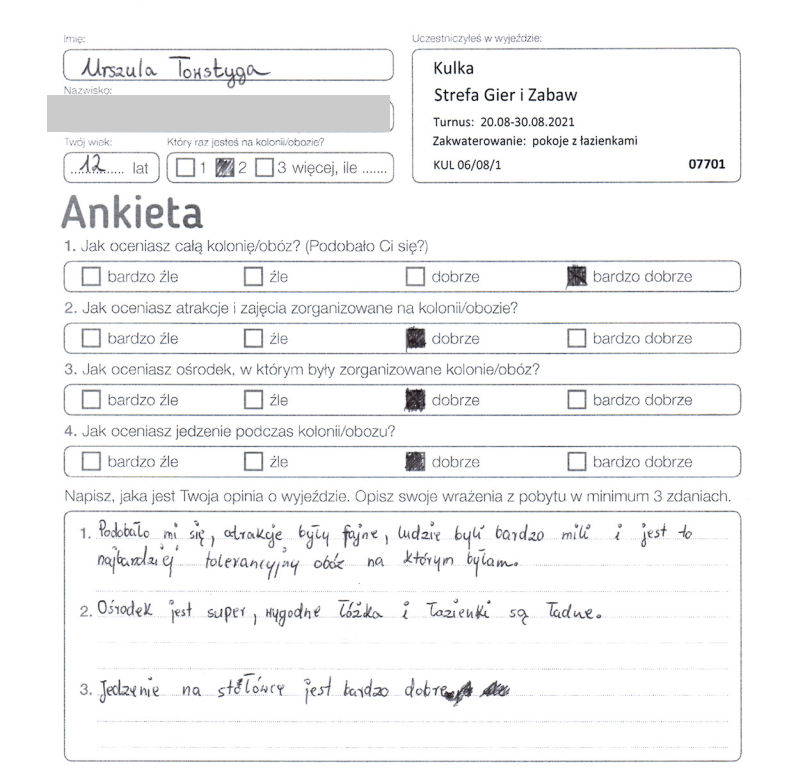 Imię:
Urszula
Nazwisko:
Twój wiek:
Który raz jesteś na kolonii/obozie?
12 lat
1 2 3 więcej, ile .......
Uczestniczyłeś w wyjeździe:
Kulka
Strefa Gier i Zabaw
Turnus: 20.08-30.08.2021
Zakwaterowanie: pokoje z łazienkami
KUL 06/08/1 07701
Ankieta
1. Jak oceniasz całą kolonię/obóz? (Podobało Ci się?)
bardzo źle źle dobrze bardzo dobrze
2. Jak oceniasz atrakcje i zajęcia zorganizowane na kolonii/obozie?
bardzo źle źle dobrze bardzo dobrze
3. Jak oceniasz ośrodek, w którym były zorganizowane kolonie/obóz?
bardzo źle źle dobrze bardzo dobrze
4. Jak oceniasz jedzenie podczas kolonii/obozu?
bardzo źle źle dobrze bardzo dobrze
Napisz, jaka jest Twoja opinia o wyjeździe. Opisz swoje wrażenia z pobytu w minimum 3 zdaniach.
1. Podobało mi się, atrakcje były fajne, ludzie byli bardzo mili i jest to
najbardziej tolerancyjny obóz na którym byłam.
2. Ośrodek jest super, wygodne łóżka i łazienki są ładne.
3. Jedzenie na stołówce jest bardzo dobre